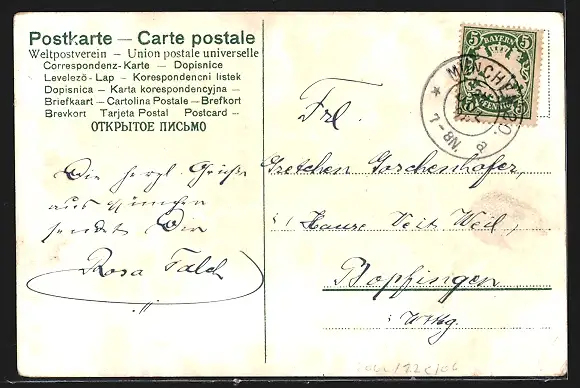 Postkarte — Carte postale
Weltpostverein — Union postale universelle
Correspondenz-Karte — Dopisnice
Levelező-Lap — Korespondencni listek
Dopisnica — Karta korespondencyjna —
Briefkaart — Cartolina Postale — Brefkort
Brevkort Tarjeta Postal Postcard —
ОТКРЫТОЕ ПИСЬМО
5 5
BAYERN
PFENNIG
MÜNCHEN
7-8N.
Frl.
Gretchen Gorschenhofer,
(Hause Veit Weil)
Bopfingen
Wttbg.
Die herzl. Grüße
aus München
sendet Dir
Rosa Falch